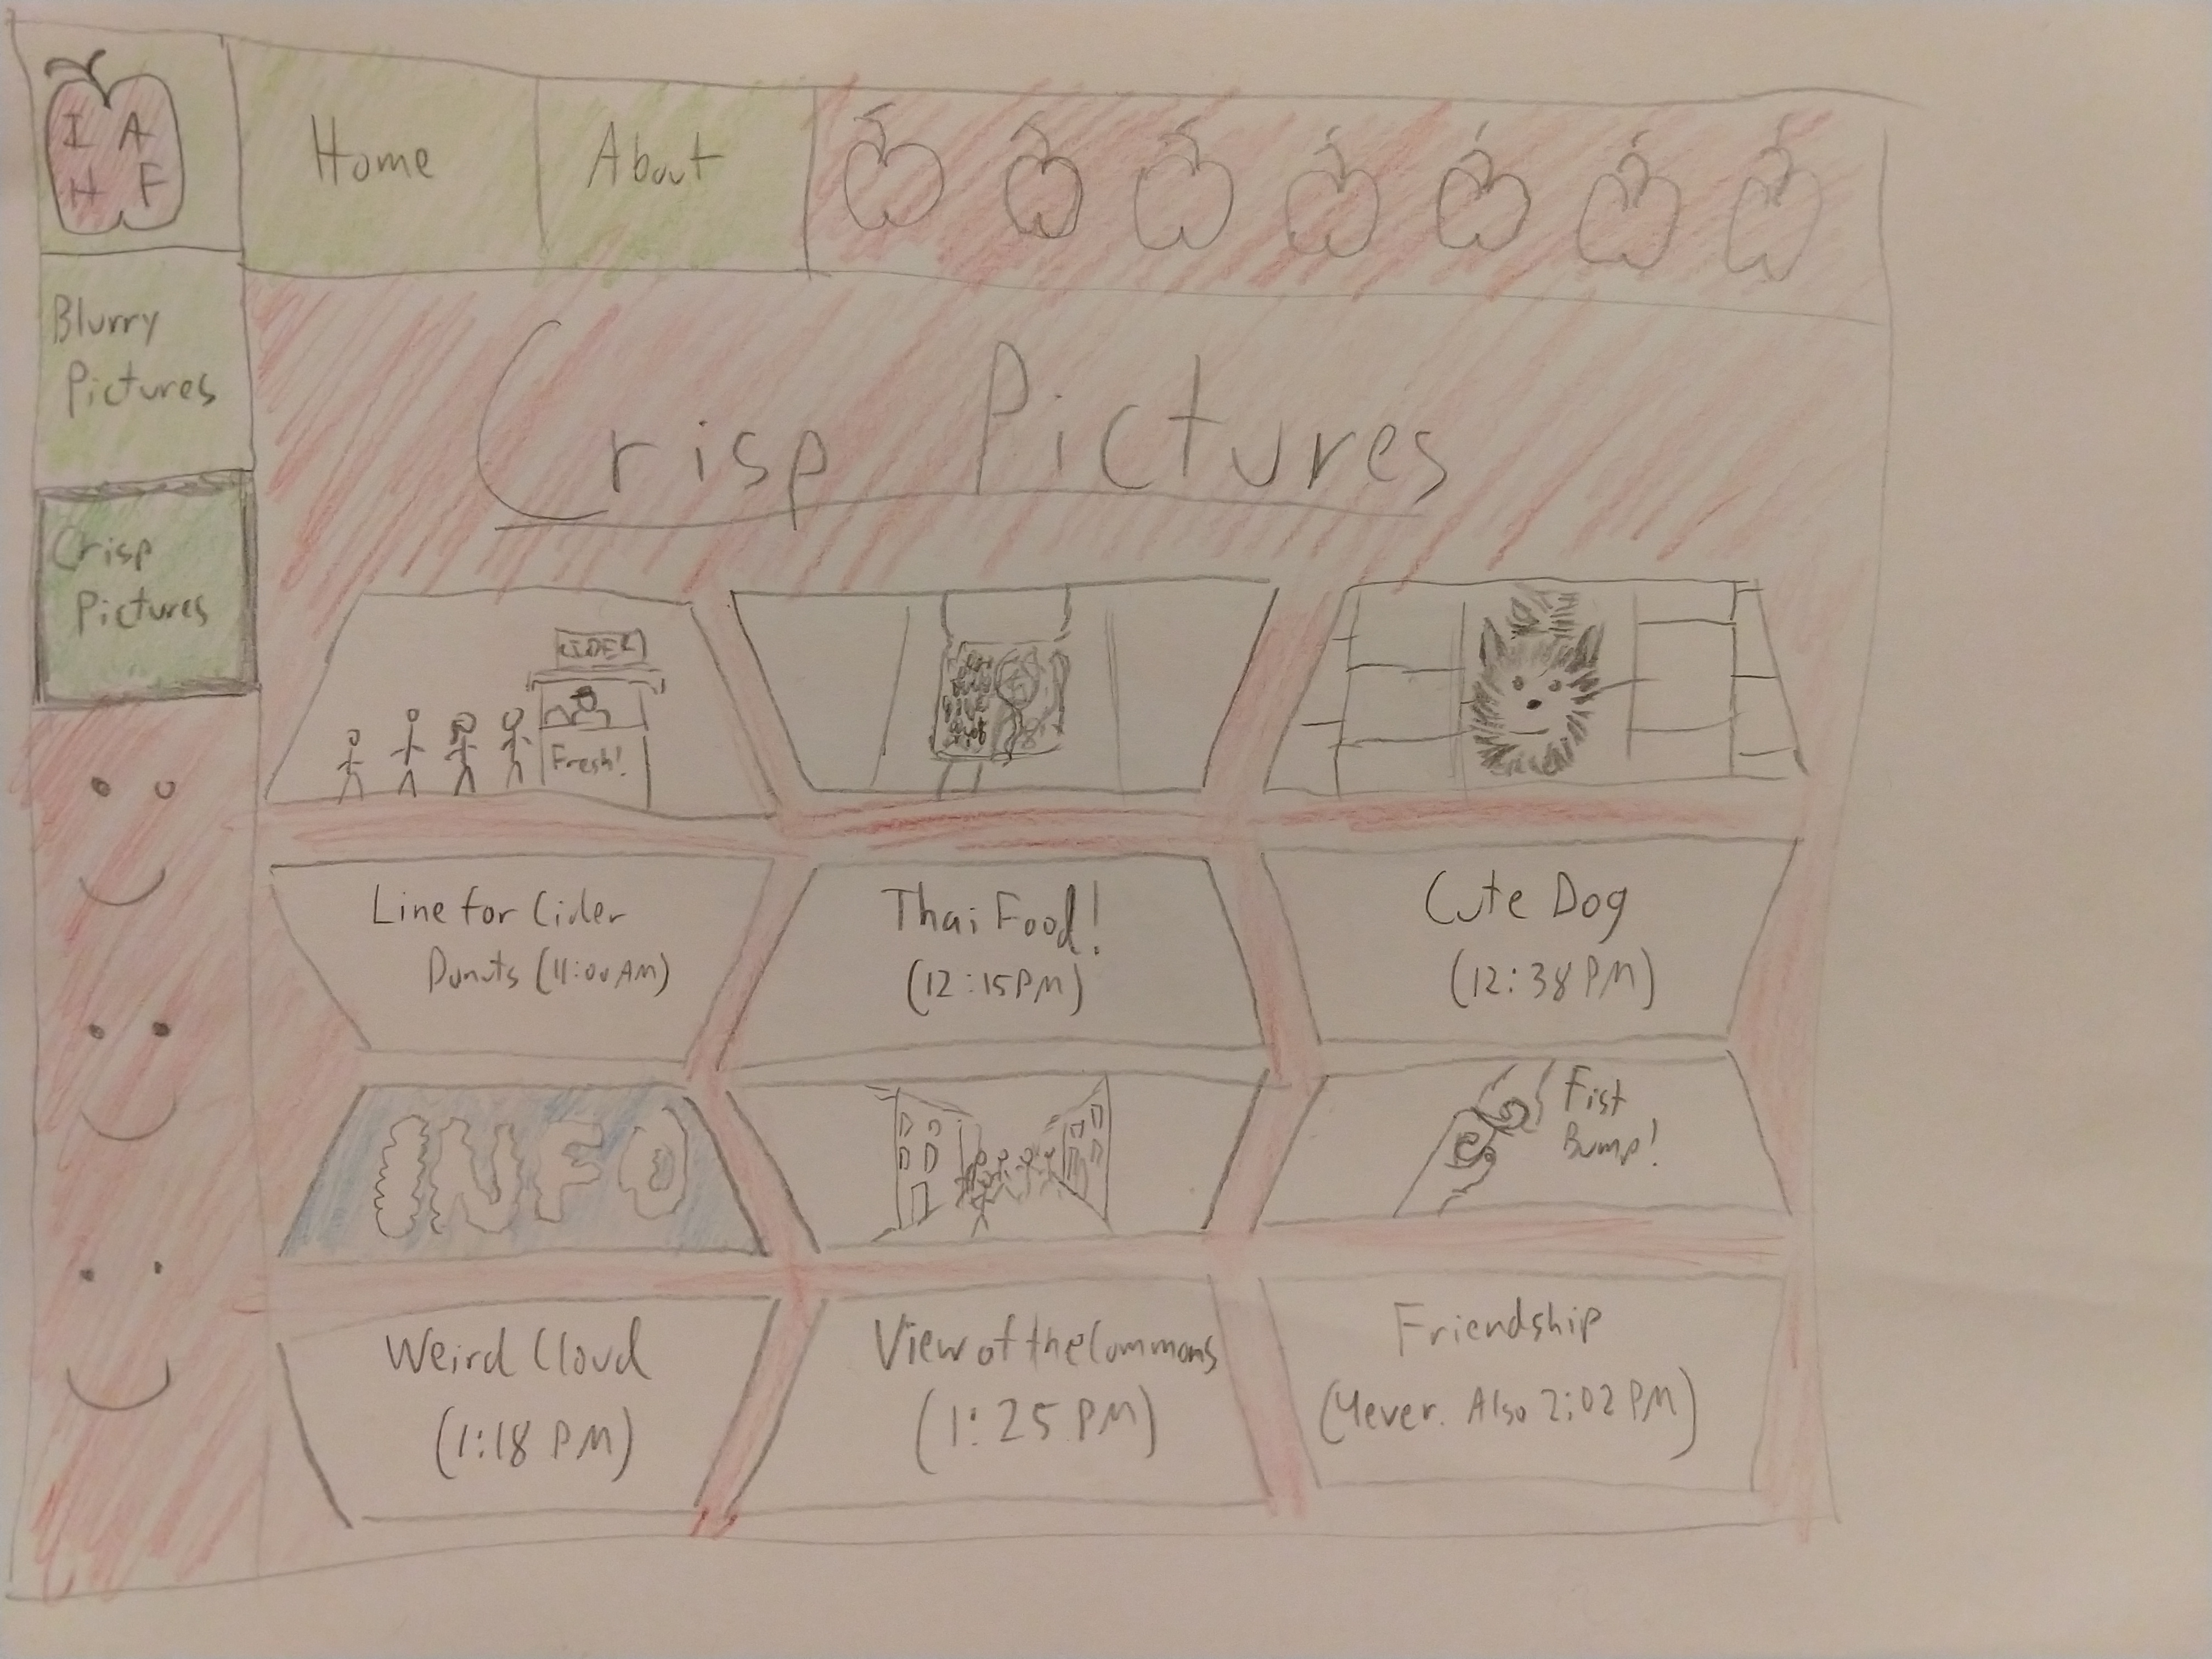 I A
H F
Home
About
Blurry
Pictures
Crisp
Pictures
Crisp Pictures
CIDER
Fresh!
Line for Cider
Donuts (11:00 AM)
Thai Food!
(12:15PM)
Cute Dog
(12:38 PM)
INFO
Fist
Bump!
Weird Cloud
(1:18 PM)
View of the Commons
(1:25 PM)
Friendship
(4ever. Also 2:02 PM)